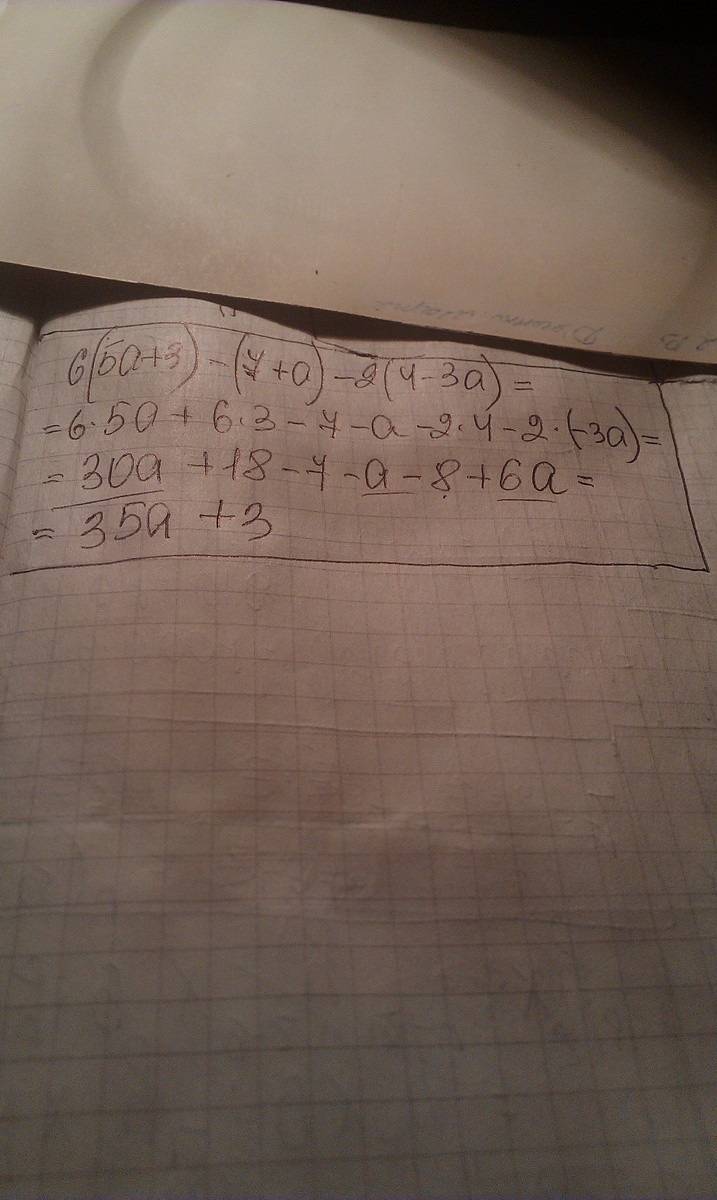 6(5a+3)-(7+a)-2(4-3a)=
=6·5a+6·3-7-a-2·4-2·(-3a)=
=30a+18-7-a-8+6a=
=35a+3